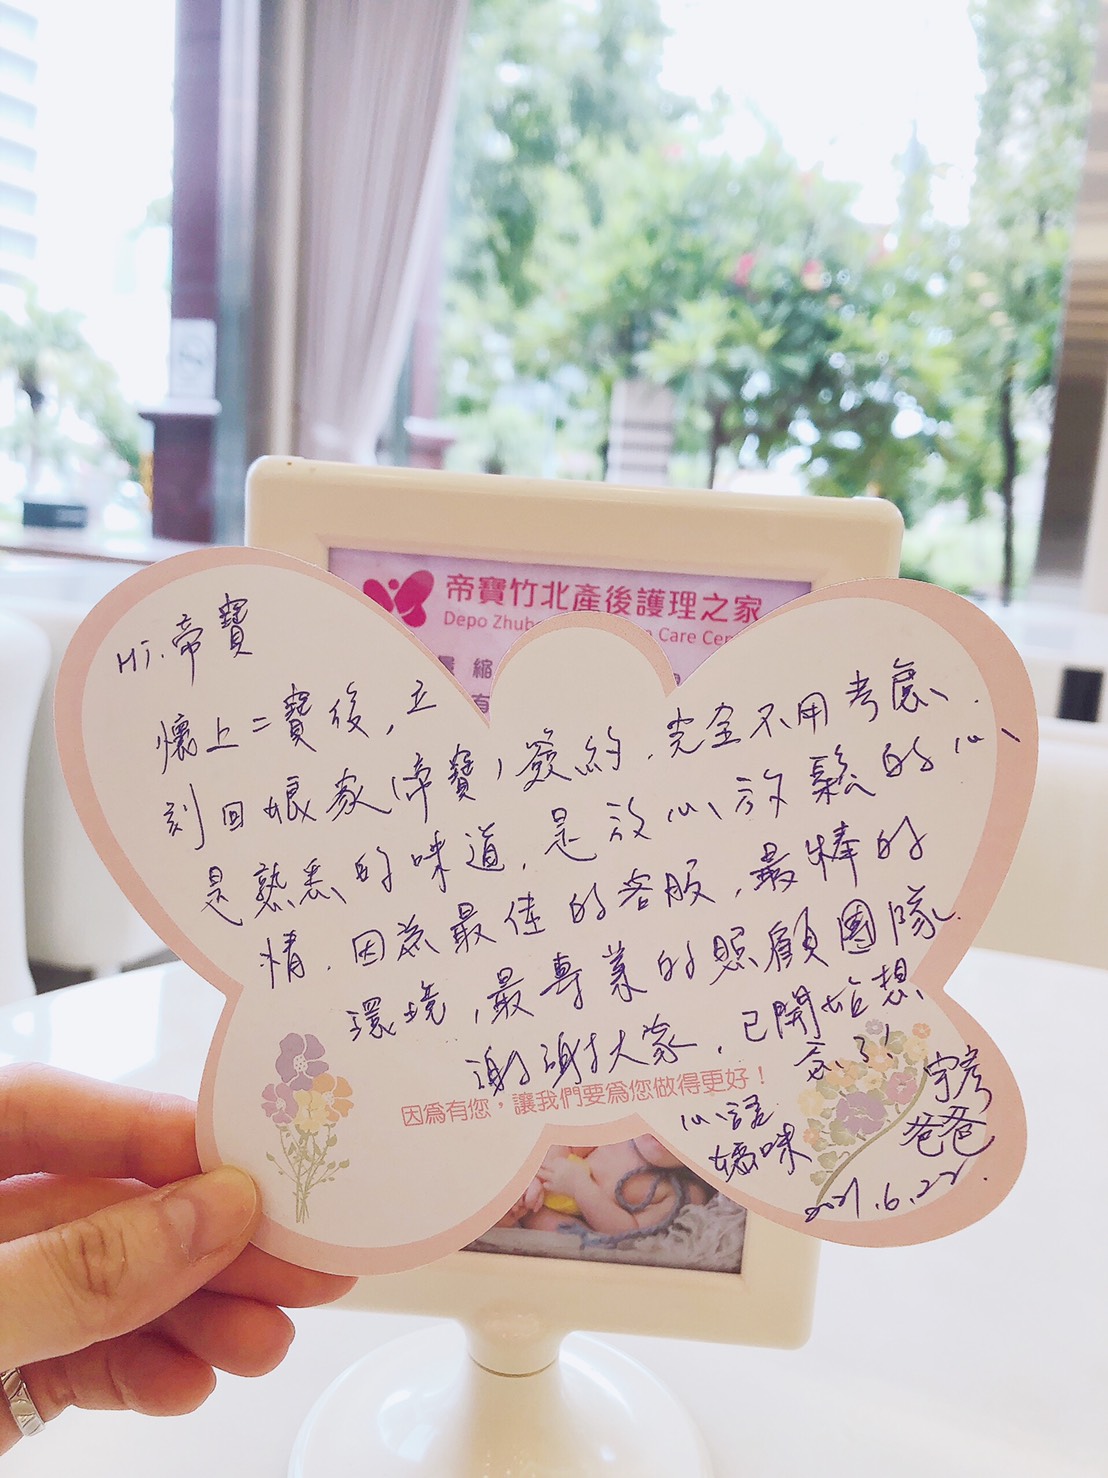 帝寶竹北產後護理之家
Depo Zhub
Care Cen
縮
有
Hi. 帝寶
懷上二寶後, 立
刻回娘家(帝寶)簽約, 完全不用考慮、
是熟悉的味道, 是放心放鬆的心
情, 因為最佳的客服, 最棒的
環境, 最專業的照顧團隊.
謝謝大家, 已開始想
念了!
因為有您,讓我們要為您做得更好!
心諾
媽咪
宇彥
爸爸
2021.6.22.